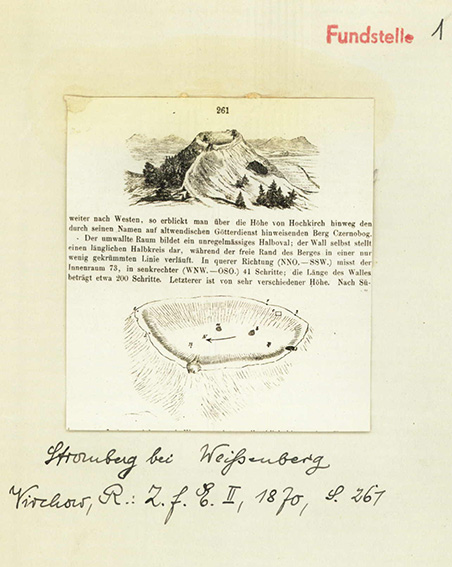 Fundstelle 1
261
weiter nach Westen, so erblickt man über die Höhe von Hochkirch hinweg den
durch seinen Namen auf altwendischen Götterdienst hinweisenden Berg Czernobog.
- Der umwallte Raum bildet ein unregelmässiges Halboval; der Wall selbst stellt
einen länglichen Halbkreis dar, während der freie Rand des Berges in einer nur
wenig gekrümmten Linie verläuft. In querer Richtung (NNO.—SSW.) misst der
Innenraum 73, in senkrechter (WNW.—OSO.) 41 Schritte; die Länge des Walles
beträgt etwa 200 Schritte. Letzterer ist von sehr verschiedener Höhe. Nach Sü-
Stromberg bei Weißenberg
Virchow, R.: Z. f. E. II, 1870, S. 261